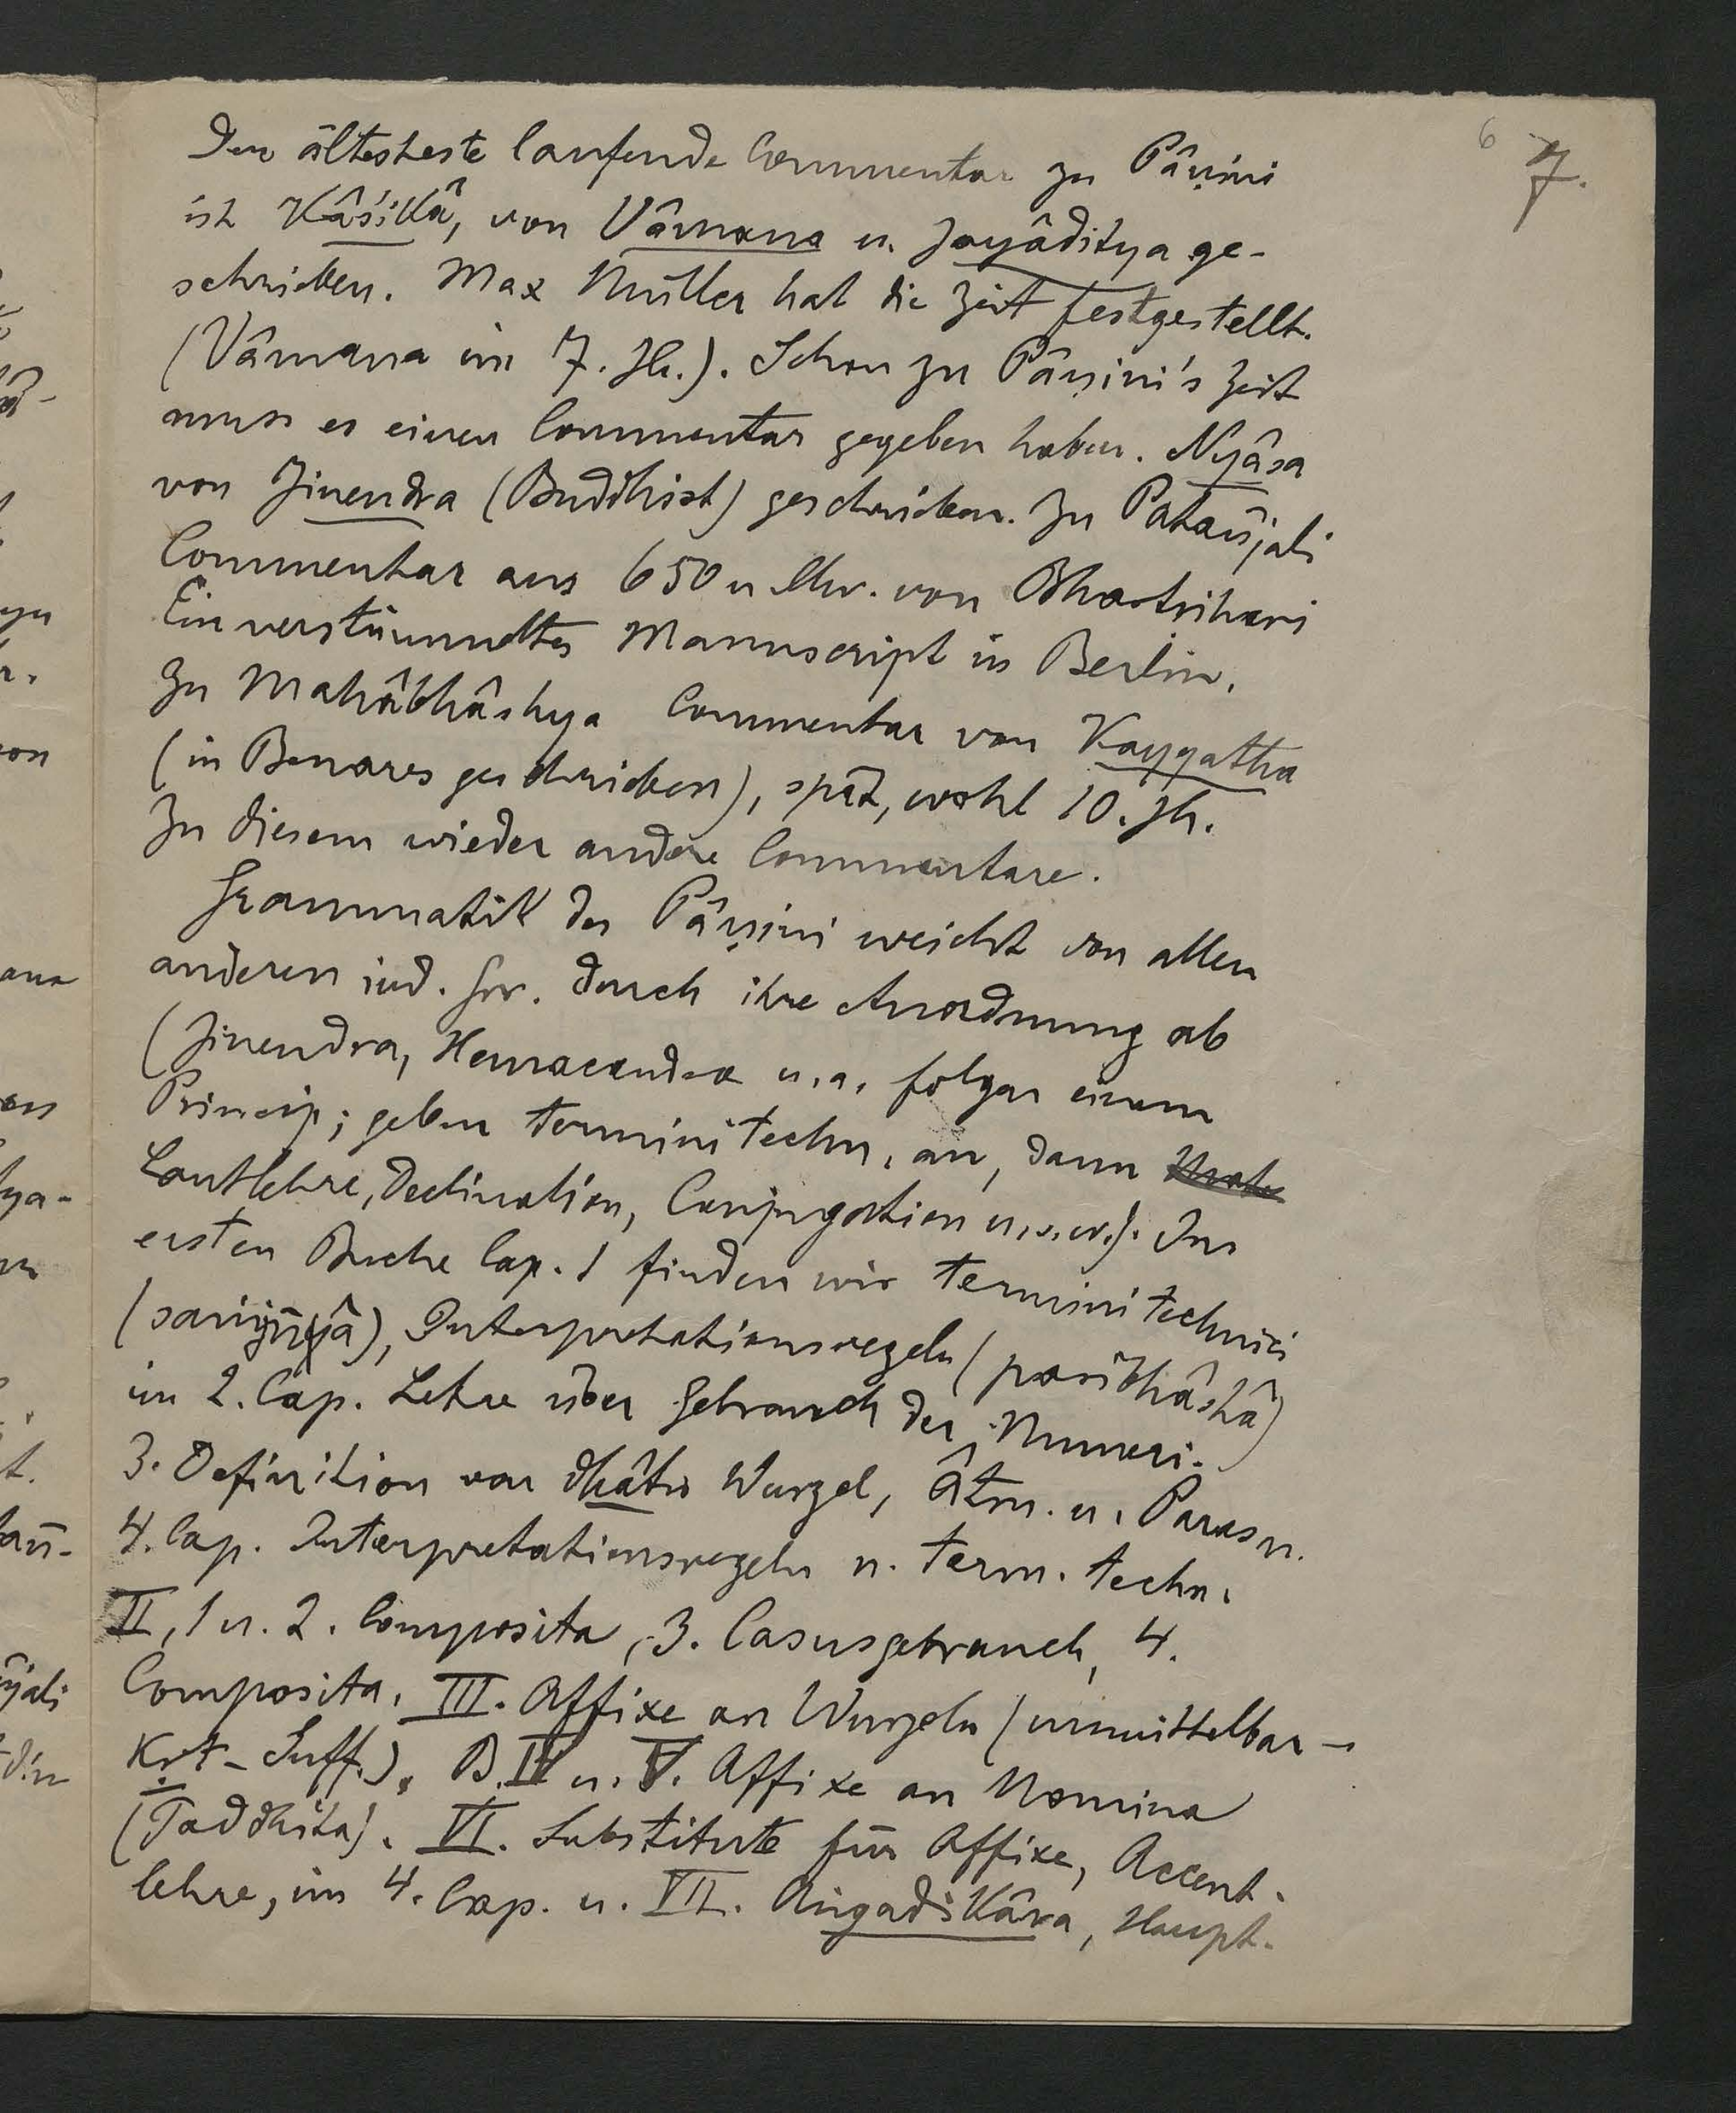 6 7.
Der ältesteste laufende Commentar zu Pâṇini
ist Kâśikâ, von Vâmana u. Jayâditya ge-
schrieben. Max Müller hat die Zeit festgestellt.
(Vâmana im 7. Jh.). Schon zu Pâṇini's Zeit
muss es einen Commentar gegeben haben. Nyâsa
von Jinendra (Buddhist) geschrieben. Zu Patañjali
Commentar aus 650 n Chr. von Bhartrihari
Ein verstümmeltes Manuscript in Berlin.
Zu Mahâbhâshya Commentar von Kayyatha
(in Benares geschrieben), spät, wohl 10. Jh.
Zu diesem wieder andere Commentare.
Grammatik des Pâṇini weicht von allen
anderen ind. Gr. durch ihre Anordnung ab
(Jinendra, Hemacandra u. a. folgen einem
Princip; geben termini techn. an, dann
Lautlehre, Declination, Conjugation u. s. w.). Im
ersten Buche Cap. 1 finden wir termini technici
(saṁjñâ), Interpretationsregeln (paribhâshâ)
im 2. Cap. Lehre über Gebrauch der Numeri.
3. Definition von dhâtu Wurzel, Âtm. u. Parasm.
4. Cap. Interpretationsregeln u. term. techn.
II, 1 u. 2. Composita, 3. Casusgebrauch, 4.
Composita. III. Affixe an Wurzeln (unmittelbar -
Kṛt-Suff.). B. IV u. V. Affixe an Nomina
(Taddhita). VI. Substitute für Affixe, Accent-
lehre, im 4. Cap. u. VII. Aṅgadikâra, Haupt-